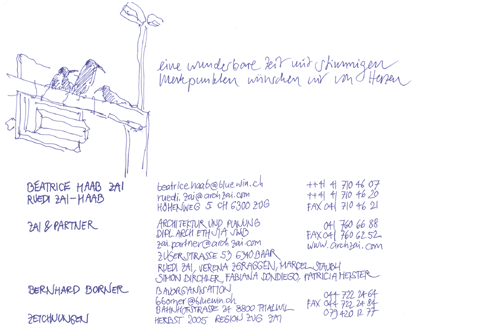 eine wunderbare Zeit mit stimmigen
Merkpunkten wünschen wir von Herzen
BEATRICE HAAB ZAI beatrice.haab@bluewin.ch ++41 41 710 46 07
RUEDI ZAI-HAAB ruedi.zai@archzai.com ++41 41 710 46 20
HÖHENWEG 5 CH 6300 ZUG FAX 041 710 46 21
ZAI & PARTNER ARCHITEKTUR UND PLANUNG 041 760 66 88
DIPL ARCH ETH SIA SWB FAX 041 760 62 52
zai.partner@archzai.com www.archzai.com
ZUGERSTRASSE 53 6340 BAAR
RUEDI ZAI, VERENA ZGRAGGEN, MARCEL STAUBLI
SIMON DIRCHLER, FABIANA SONDIEGO, PATRICIA MEISTER
BERNHARD BORNER BAUORGANISATION 044 722 24 64
bborner@bluewin.ch FAX 044 722 24 84
BAHNHOFSTRASSE 24 8800 THALWIL 079 420 12 77
ZEICHNUNGEN HERBST 2005 REGION ZUG ZAI